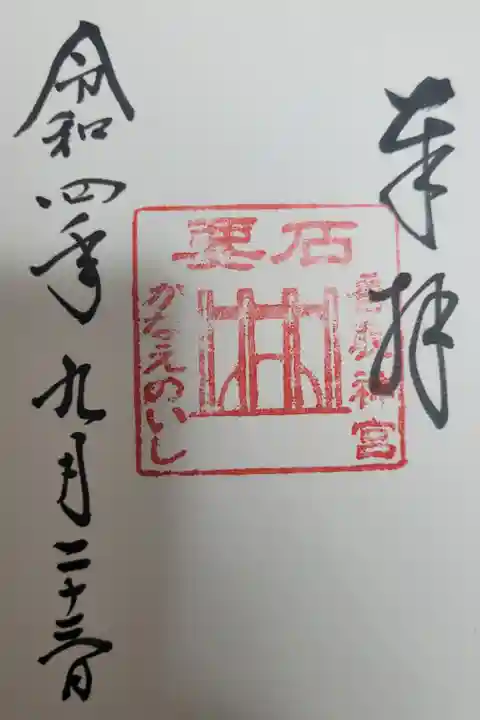 奉拝
要石
香取神宮
かなめのいし
令和四年九月二十三日